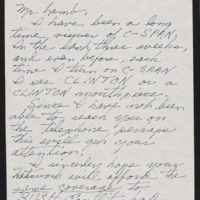 Mr. Lamb,
I have been a long
time viewer of C-SPAN,
In the last three weeks,
and even before, each
time I turn on C-SPAN
I see CLINTON or a
CLINTON mouthpiece.
Since I have not been
able to reach you on
the telephone perhaps
this will get your
attention.
I sincerely hope your
network will afford the
same coverage to